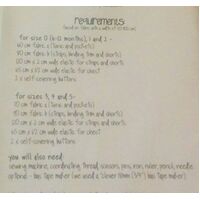 requirements
(based on fabric with a width of 112-115 cm)
for size 0 (6-12 months), 1 and 2 -
60 cm fabric a (tunic and pockets)
90 cm fabric b (straps, binding, trim and shorts)
120 cm x 2 cm wide elastic for straps and shorts
65 cm x 1/2 cm wide elastic for chest
2 x self-covering buttons
for sizes 3, 4 and 5-
90 cm fabric a (tunic and pockets)
90 cm fabric b (straps, binding, trim and shorts)
120 cm x 2 cm wide elastic for straps and shorts
65 cm x 1/2 cm wide elastic for chest
2 x self-covering buttons
you will also need:
sewing machine, coordinating thread, scissors, pins, iron, ruler, pencil, needle
optional - bias tape maker (we used a "clover 18mm (3/4") bias tape maker)